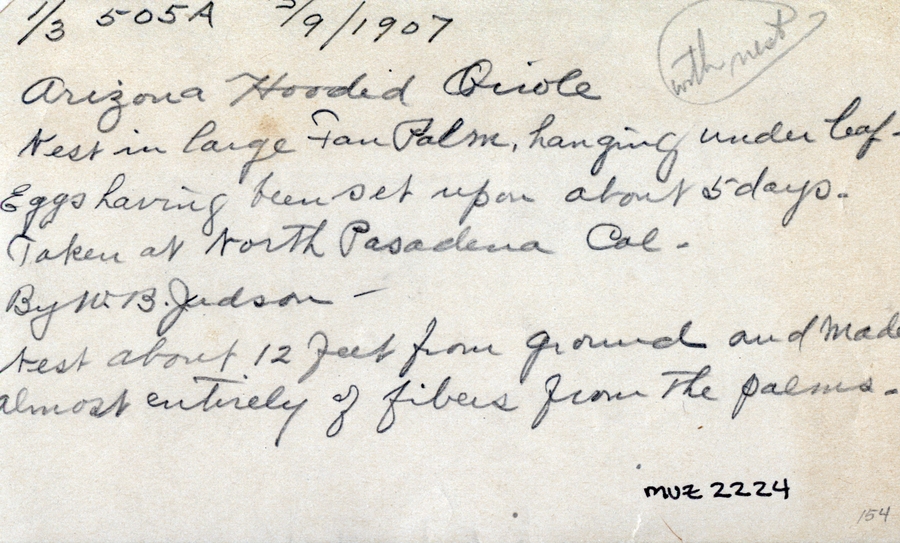 1/3 505A 5/9/1907
with nest
Arizona Hooded Oriole
Nest in large Fan Palm, hanging under leaf-
Eggs having been set upon about 5 days.
Taken at North Pasadena Cal-
By W. B. Judson -
Nest about 12 feet from ground and made
almost entirely of fibers from the palms.
MVZ 2224
154